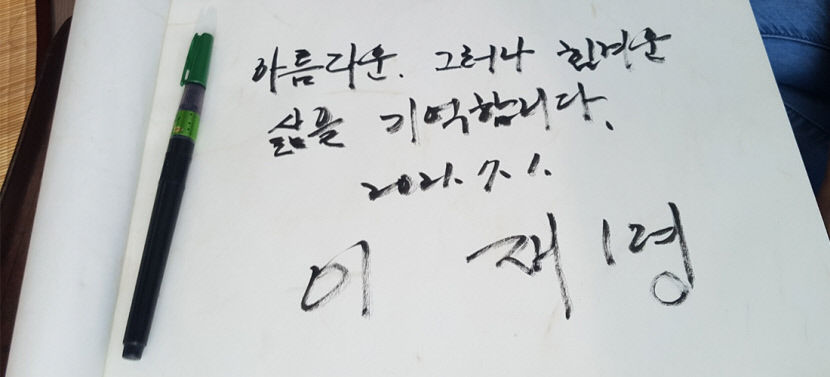 아름다운. 그러나 힘겨운
삶을 기억합니다.
2021. 7. 1.
이 재 명